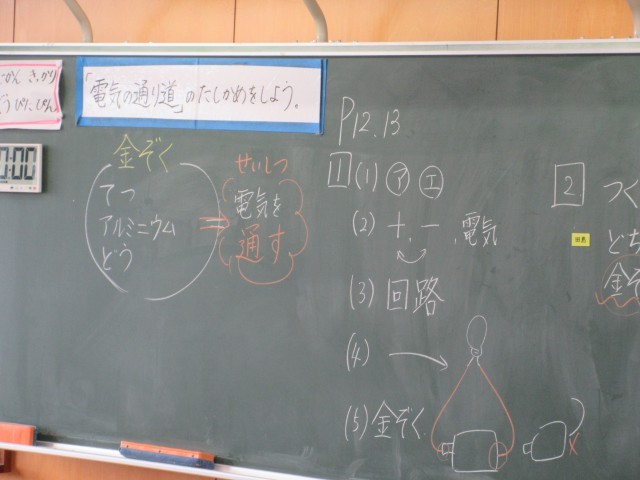 じかん きっかり
うぴったん
「電気の通り道」のたしかめをしよう。
0:00
金ぞく
てつ
アルミニウム
どう
せいしつ
電気を
通す
P12.13
1 (1) ㋐ ㋓
(2) +、−、電気
(3) 回路
(4)
(5) 金ぞく
2 つく
どち
金ぞ